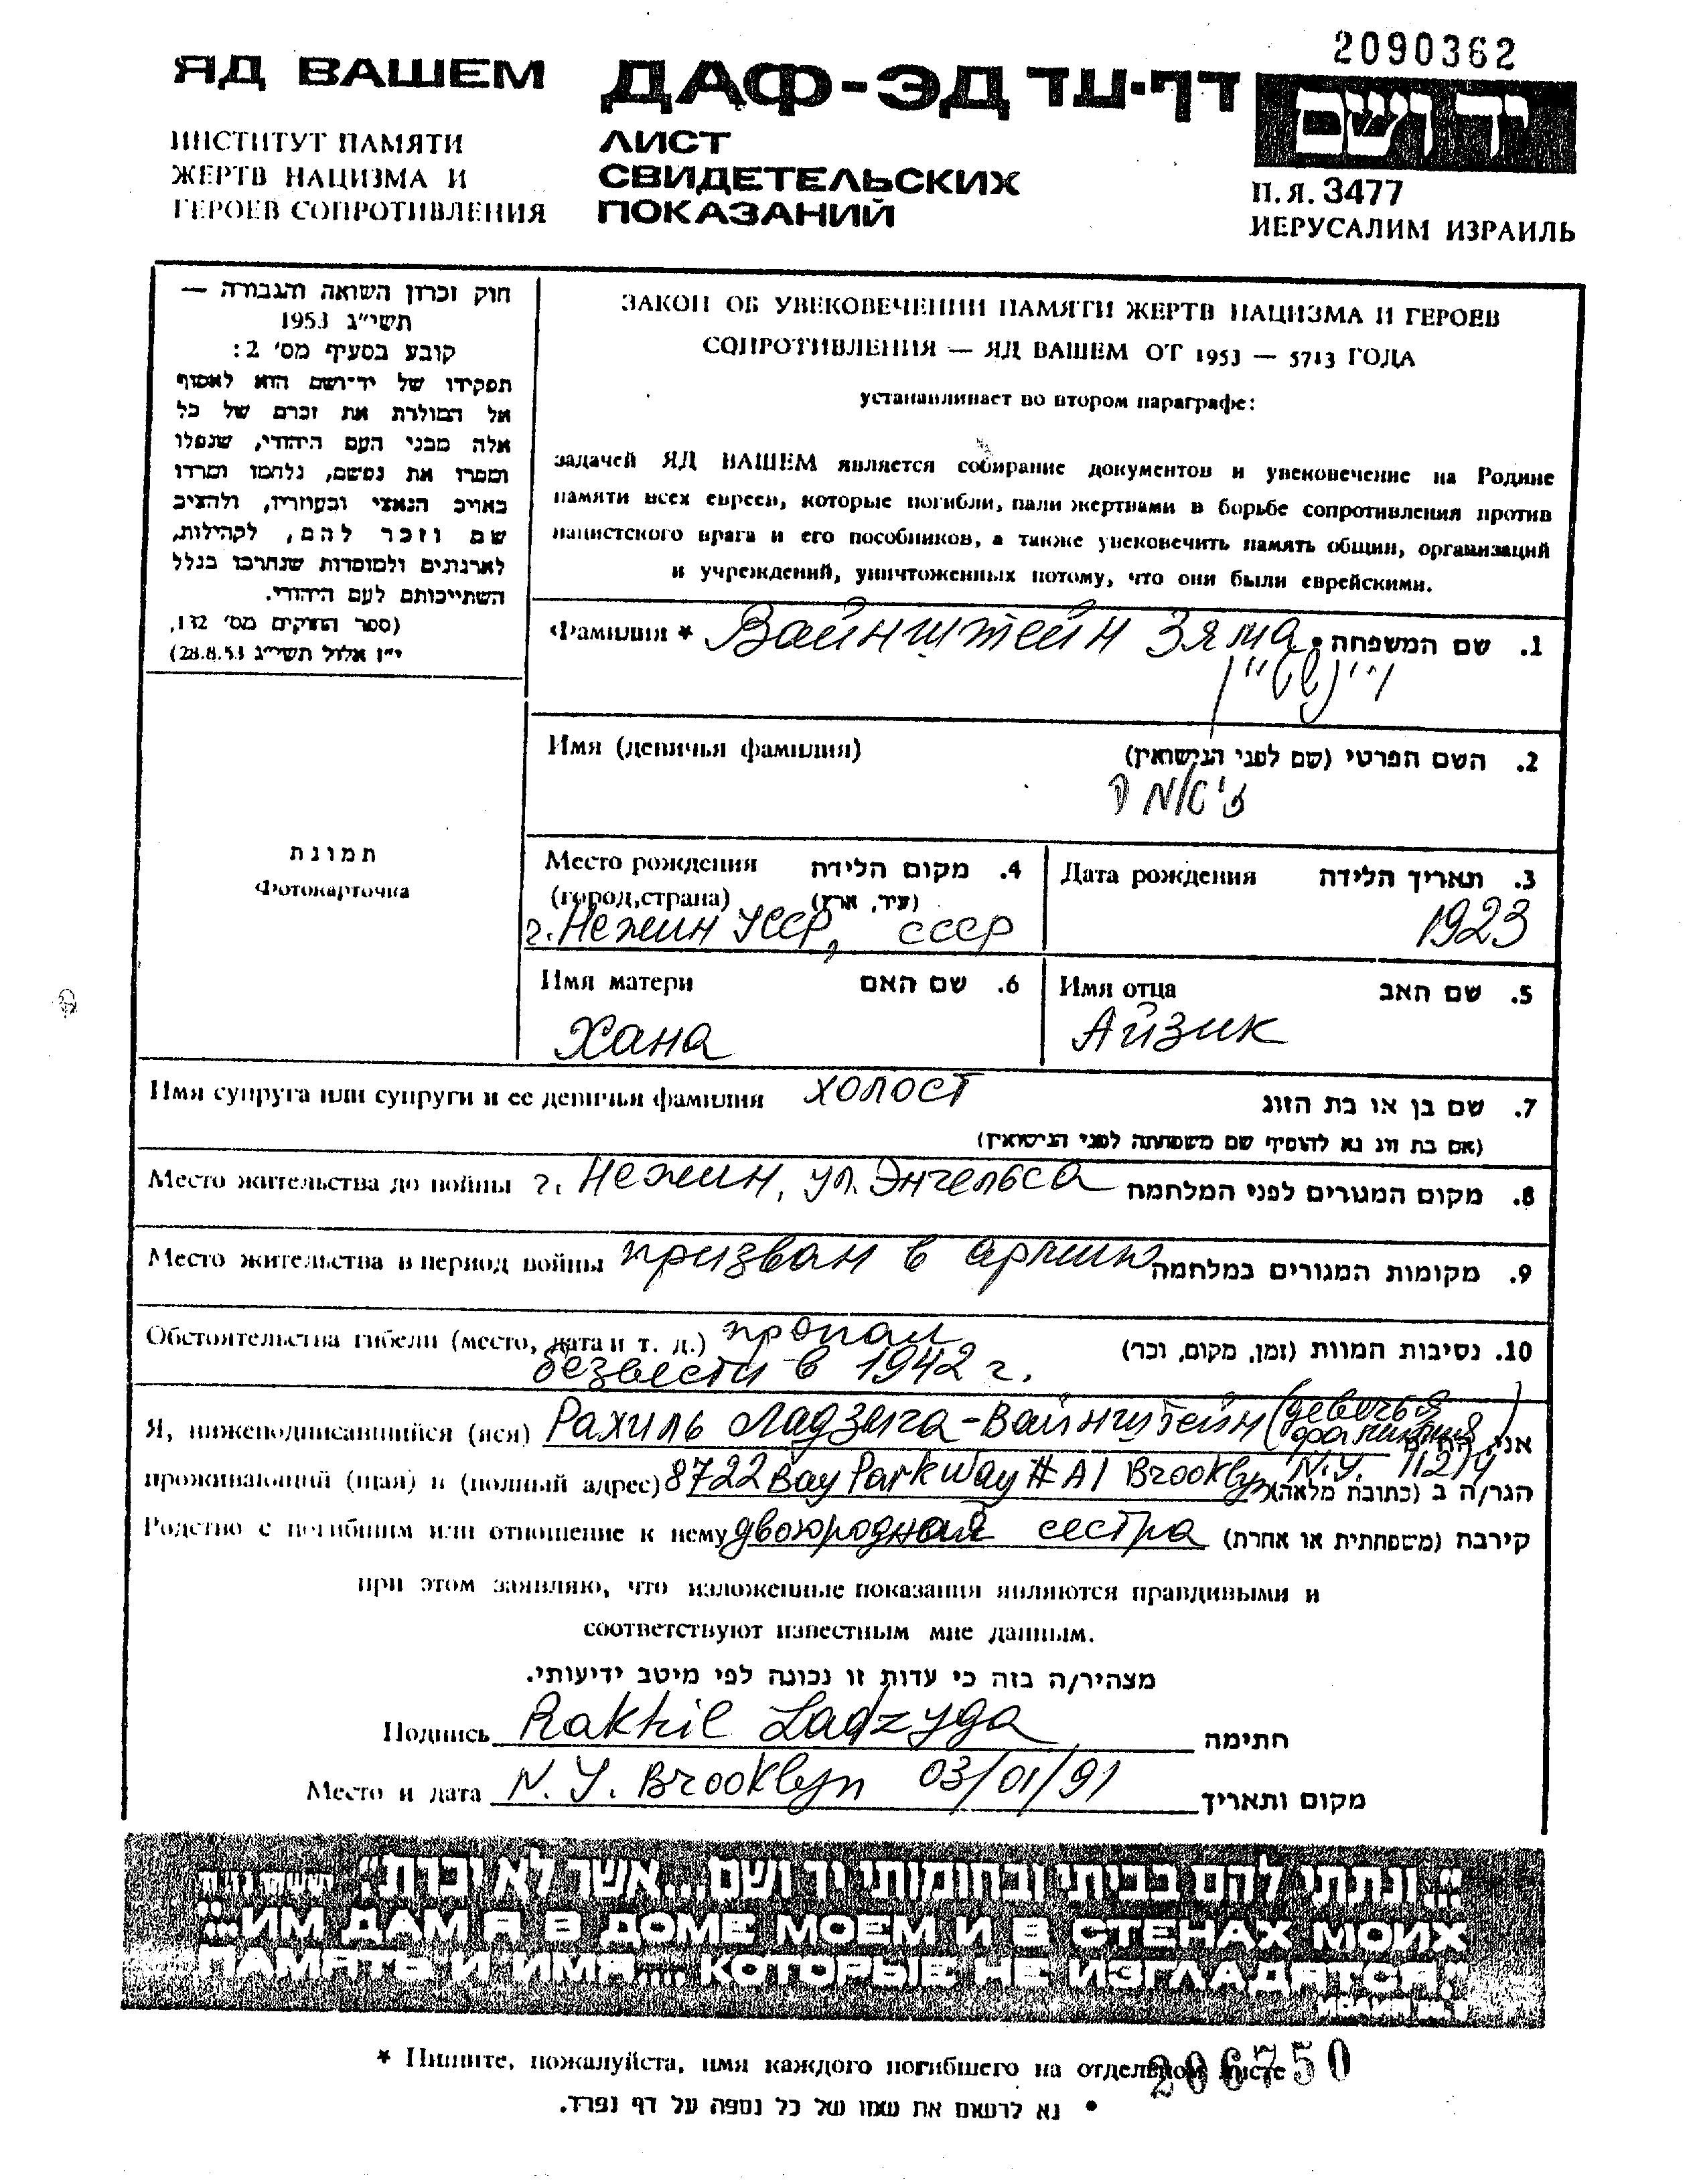 2090362
ЯД ВАШЕМ ДАФ-ЭД דף-עד יד ושם
ИНСТИТУТ ПАМЯТИ
ЖЕРТВ НАЦИЗМА И
ГЕРОЕВ СОПРОТИВЛЕНИЯ
ЛИСТ
СВИДЕТЕЛЬСКИХ
ПОКАЗАНИЙ
П.Я. 3477
ИЕРУСАЛИМ ИЗРАИЛЬ
חוק זכרון השואה והגבורה —
תשי"ג 1953
קובע בסעיף מס' 2:
תפקידו של יד־ושם הוא לאסוף
אל המולדת את זכרם של כל
אלה מבני העם היהודי, שנפלו
ומסרו את נפשם, נלחמו ומרדו
באויב הנאצי ובעוזריו, ולהציב
שם וזכר להם, לקהילות,
לארגונים ולמוסדות שנחרבו בגלל
השתייכותם לעם היהודי.
(ספר החוקים מס' 132,
י"ז אלול תשי"ג 28.8.53)
ЗАКОН ОБ УВЕКОВЕЧЕНИИ ПАМЯТИ ЖЕРТВ НАЦИЗМА И ГЕРОЕВ
СОПРОТИВЛЕНИЯ — ЯД ВАШЕМ ОТ 1953 — 5713 ГОДА
устанавливает во втором параграфе:
задачей ЯД ВАШЕМ является собирание документов и увековечение на Родине
памяти всех евреев, которые погибли, пали жертвами в борьбе сопротивления против
нацистского врага и его пособников, а также увековечить память общин, организаций
и учреждений, уничтоженных потому, что они были еврейскими.
Фамилия * Вайнштейн Зяма • שם המשפחה .1
ויינשטיין
Имя (девичья фамилия) השם הפרטי (שם לפני הנישואין) .2
זיאמה
תמונת
Фотокарточка
Место рождения מקום הלידה .4
(город,страна) (עיר, ארץ)
г. Нежин УССР, СССР
Дата рождения תאריך הלידה .3
1923
Имя матери שם האם .6
Хана
Имя отца שם האב .5
Айзик
Имя супруга или супруги и ее девичья фамилия холост שם בן או בת הזוג .7
(אם בת זוג נא להוסיף שם משפחתה לפני הנישואין)
Место жительства до войны г. Нежин, ул. Энгельса מקום המגורים לפני המלחמה .8
Место жительства в период войны призван в армию מקומות המגורים במלחמה .9
Обстоятельства гибели (место, дата и т. д.) пропал נסיבות המוות (זמן, מקום, וכר) .10
безвести в 1942 г.
Я, нижеподписавшийся (аяся) Рахиль Ладзыга-Вайнштейн (девичья фамилия) אני
проживающий (щая) в (полный адрес) 8722 Bay Parkway #A1 Brooklyn N.Y. 11214 הגר/ה ב (כתובת מלאה)
Родство с погибшим или отношение к нему двоюродная сестра קירבה (משפחתית או אחרת)
при этом заявляю, что изложенные показания являются правдивыми и
соответствуют известным мне данным.
מצהיר/ה בזה כי עדות זו נכונה לפי מיטב ידיעותי.
Подпись Rakhil Ladzyga חתימה
Место и дата N.Y. Brooklyn 03/01/91 מקום ותאריך
"...ונתתי להם בביתי ובחומותי יד ושם...אשר לא יכרת".
"...ИМ ДАМ Я В ДОМЕ МОЕМ И В СТЕНАХ МОИХ
ПАМЯТЬ И ИМЯ.... КОТОРЫЕ НЕ ИЗГЛАДЯТСЯ."
* Пишите, пожалуйста, имя каждого погибшего на отдельном листе
206750
• נא לרשום את שמו של כל נספה על דף נפרד.